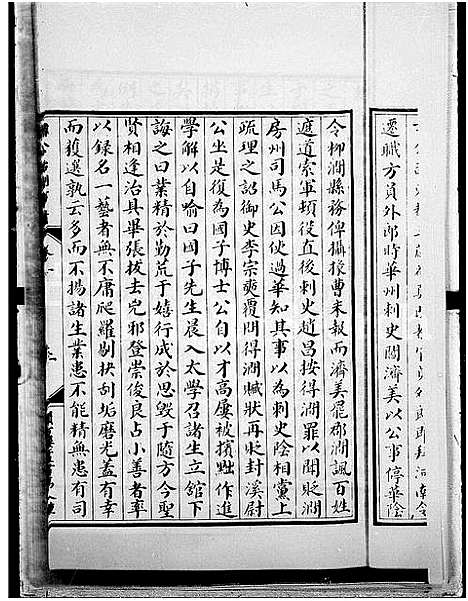 遷職方員外郎時華州刺史閻濟美以公事停華陰
令柳澗縣務俾攝掾曹未報而濟美罷郡澗諷百姓
遮道索軍頓役直後刺史趙昌按得澗罪以聞貶澗
房州司馬公因使過華知其事以為刺史陰相黨上
疏理之詔御史李宗奭覆問得澗贓狀再貶封溪尉
公坐是復為國子博士公自以才高屢被擯黜作進
學解以自喻曰國子先生晨入太學召諸生立館下
誨之曰業精於勤荒于嬉行成於思毀于隨方今聖
賢相逢治具畢張拔去兇邪登崇俊良占小善者率
以録名一藝者無不庸爬羅剔抉刮垢磨光蓋有幸
而獲選孰云多而不揚諸生業患不能精無患有司